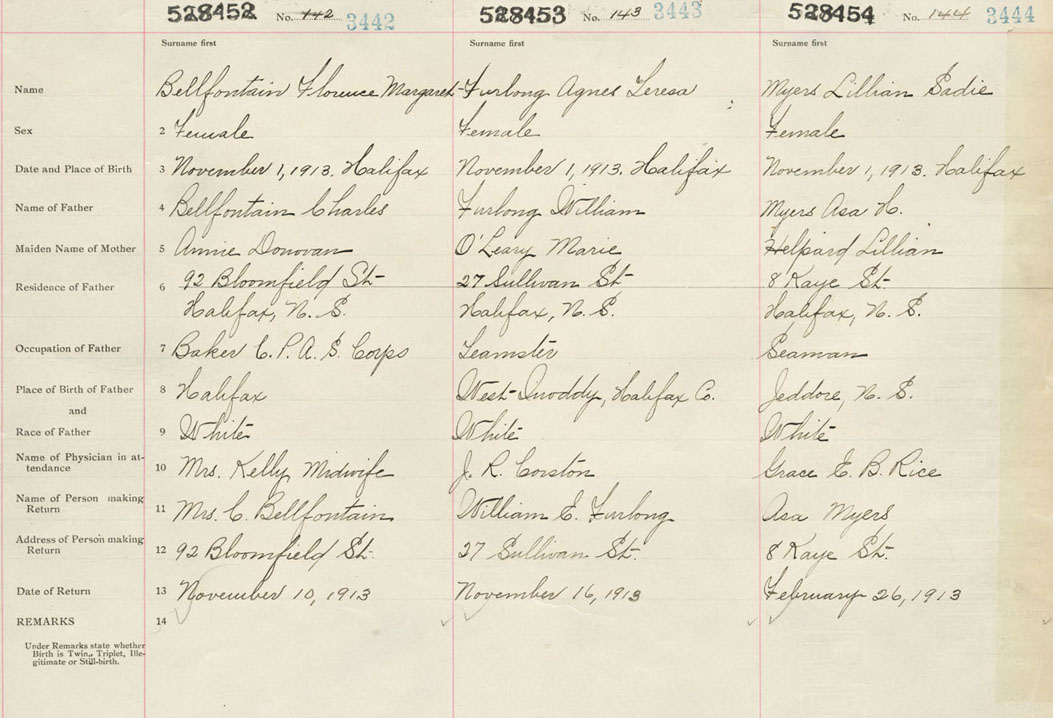 528452 No. 142 3442 528453 No. 143 3443 528454 No. 144 3444
Surname first Surname first Surname first
Name Bellfontain Florence Margaret Furlong Agnes Teresa Myers Lillian Sadie
Sex 2 Female Female Female
Date and Place of Birth 3 November 1, 1913. Halifax November 1, 1913. Halifax November 1, 1913. Halifax
Name of Father 4 Bellfontain Charles Furlong William Myers Asa H.
Maiden Name of Mother 5 Annie Donovan O'Leary Marie Helpard Lillian
Residence of Father 6 92 Bloomfield St 27 Sullivan St 8 Kaye St
Halifax, N. S. Halifax, N. S. Halifax, N. S.
Occupation of Father 7 Baker C. P. A. S. Corps Teamster Seaman
Place of Birth of Father 8 Halifax West Quoddy, Halifax Co. Jeddore, N. S.
and
Race of Father 9 White White White
Name of Physician in at-
tendance 10 Mrs. Kelly Midwife J. R. Corston Grace E. B. Rice
Name of Person making
Return 11 Mrs. C. Bellfontain William E. Furlong Asa Myers
Address of Person making
Return 12 92 Bloomfield St. 27 Sullivan St. 8 Kaye St.
Date of Return 13 November 10, 1913 November 16, 1913 February 26, 1913
REMARKS 14
Under Remarks state whether
Birth is Twin, Triplet, Ille-
gitimate or Still-birth.